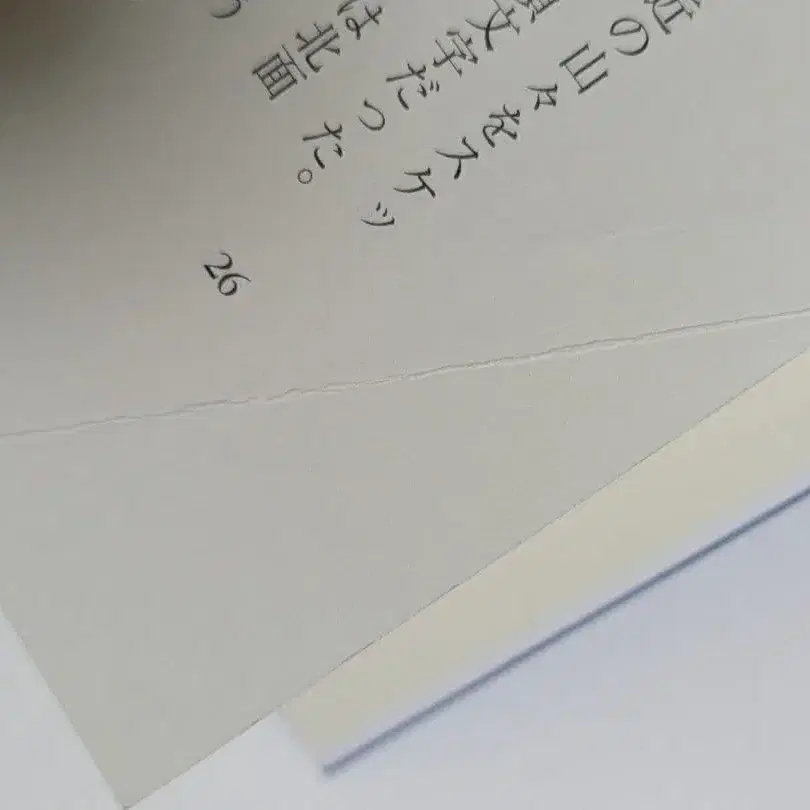 近の山々をスケッ
頭文字だった。
は北面
26